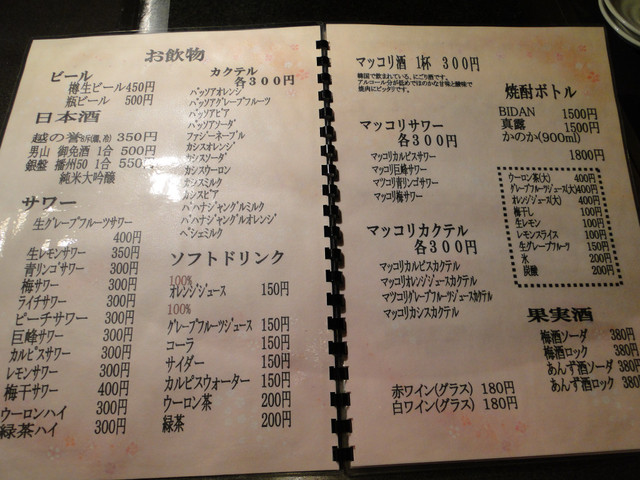 お飲物
ビール
樽生ビール450円
瓶ビール 500円
日本酒
越の誉 350円
男山 御免酒 1合 500円
銀盤 播州50 1合 550円
純米大吟醸
サワー
生グレープフルーツサワー
400円
生レモンサワー 350円
青リンゴサワー 300円
梅サワー 300円
ライチサワー 300円
ピーチサワー 300円
巨峰サワー 300円
カルピスサワー 300円
レモンサワー 300円
梅干サワー 400円
ウーロンハイ 300円
緑茶ハイ 300円
カクテル
各300円
パッソアオレンジ
パッソアグレープフルーツ
パッソアピア
パッソアソーダ
ファジーネーブル
カシスオレンジ
カシスソーダ
カシスウーロン
カシスミルク
カシスピア
パナナジャングルミルク
パナナジャングルオレンジ
ペシェミルク
ソフトドリンク
100%
オレンジジュース 150円
100%
グレープフルーツジュース 150円
コーラ 150円
サイダー 150円
カルピスウォーター 150円
ウーロン茶 200円
緑茶 200円
マッコリ酒 1杯 300円
韓国で飲まれている、にごり酒です。
アルコール分が低めでほのかな甘味と酸味で
焼肉にピッタリです。
マッコリサワー
各300円
マッコリカルピスサワー
マッコリ巨峰サワー
マッコリ青リンゴサワー
マッコリ梅サワー
マッコリカクテル
各300円
マッコリカルピスカクテル
マッコリオレンジカクテル
マッコリグレープフルーツジュースカクテル
マッコリカシスカクテル
赤ワイン(グラス) 180円
白ワイン(グラス) 180円
焼酎ボトル
BIDAN 1500円
真露 1500円
かのか(900ml)
1800円
ウーロン茶(大) 400円
グレープフルーツジュース(大)400円
オレンジジュース(大) 400円
梅干し 100円
生レモン 100円
レモンスライス 100円
生グレープフルーツ 150円
氷 200円
炭酸 200円
果実酒
梅酒ソーダ 380円
梅酒ロック 380円
あんず酒ソーダ 380円
あんず酒ロック 380円